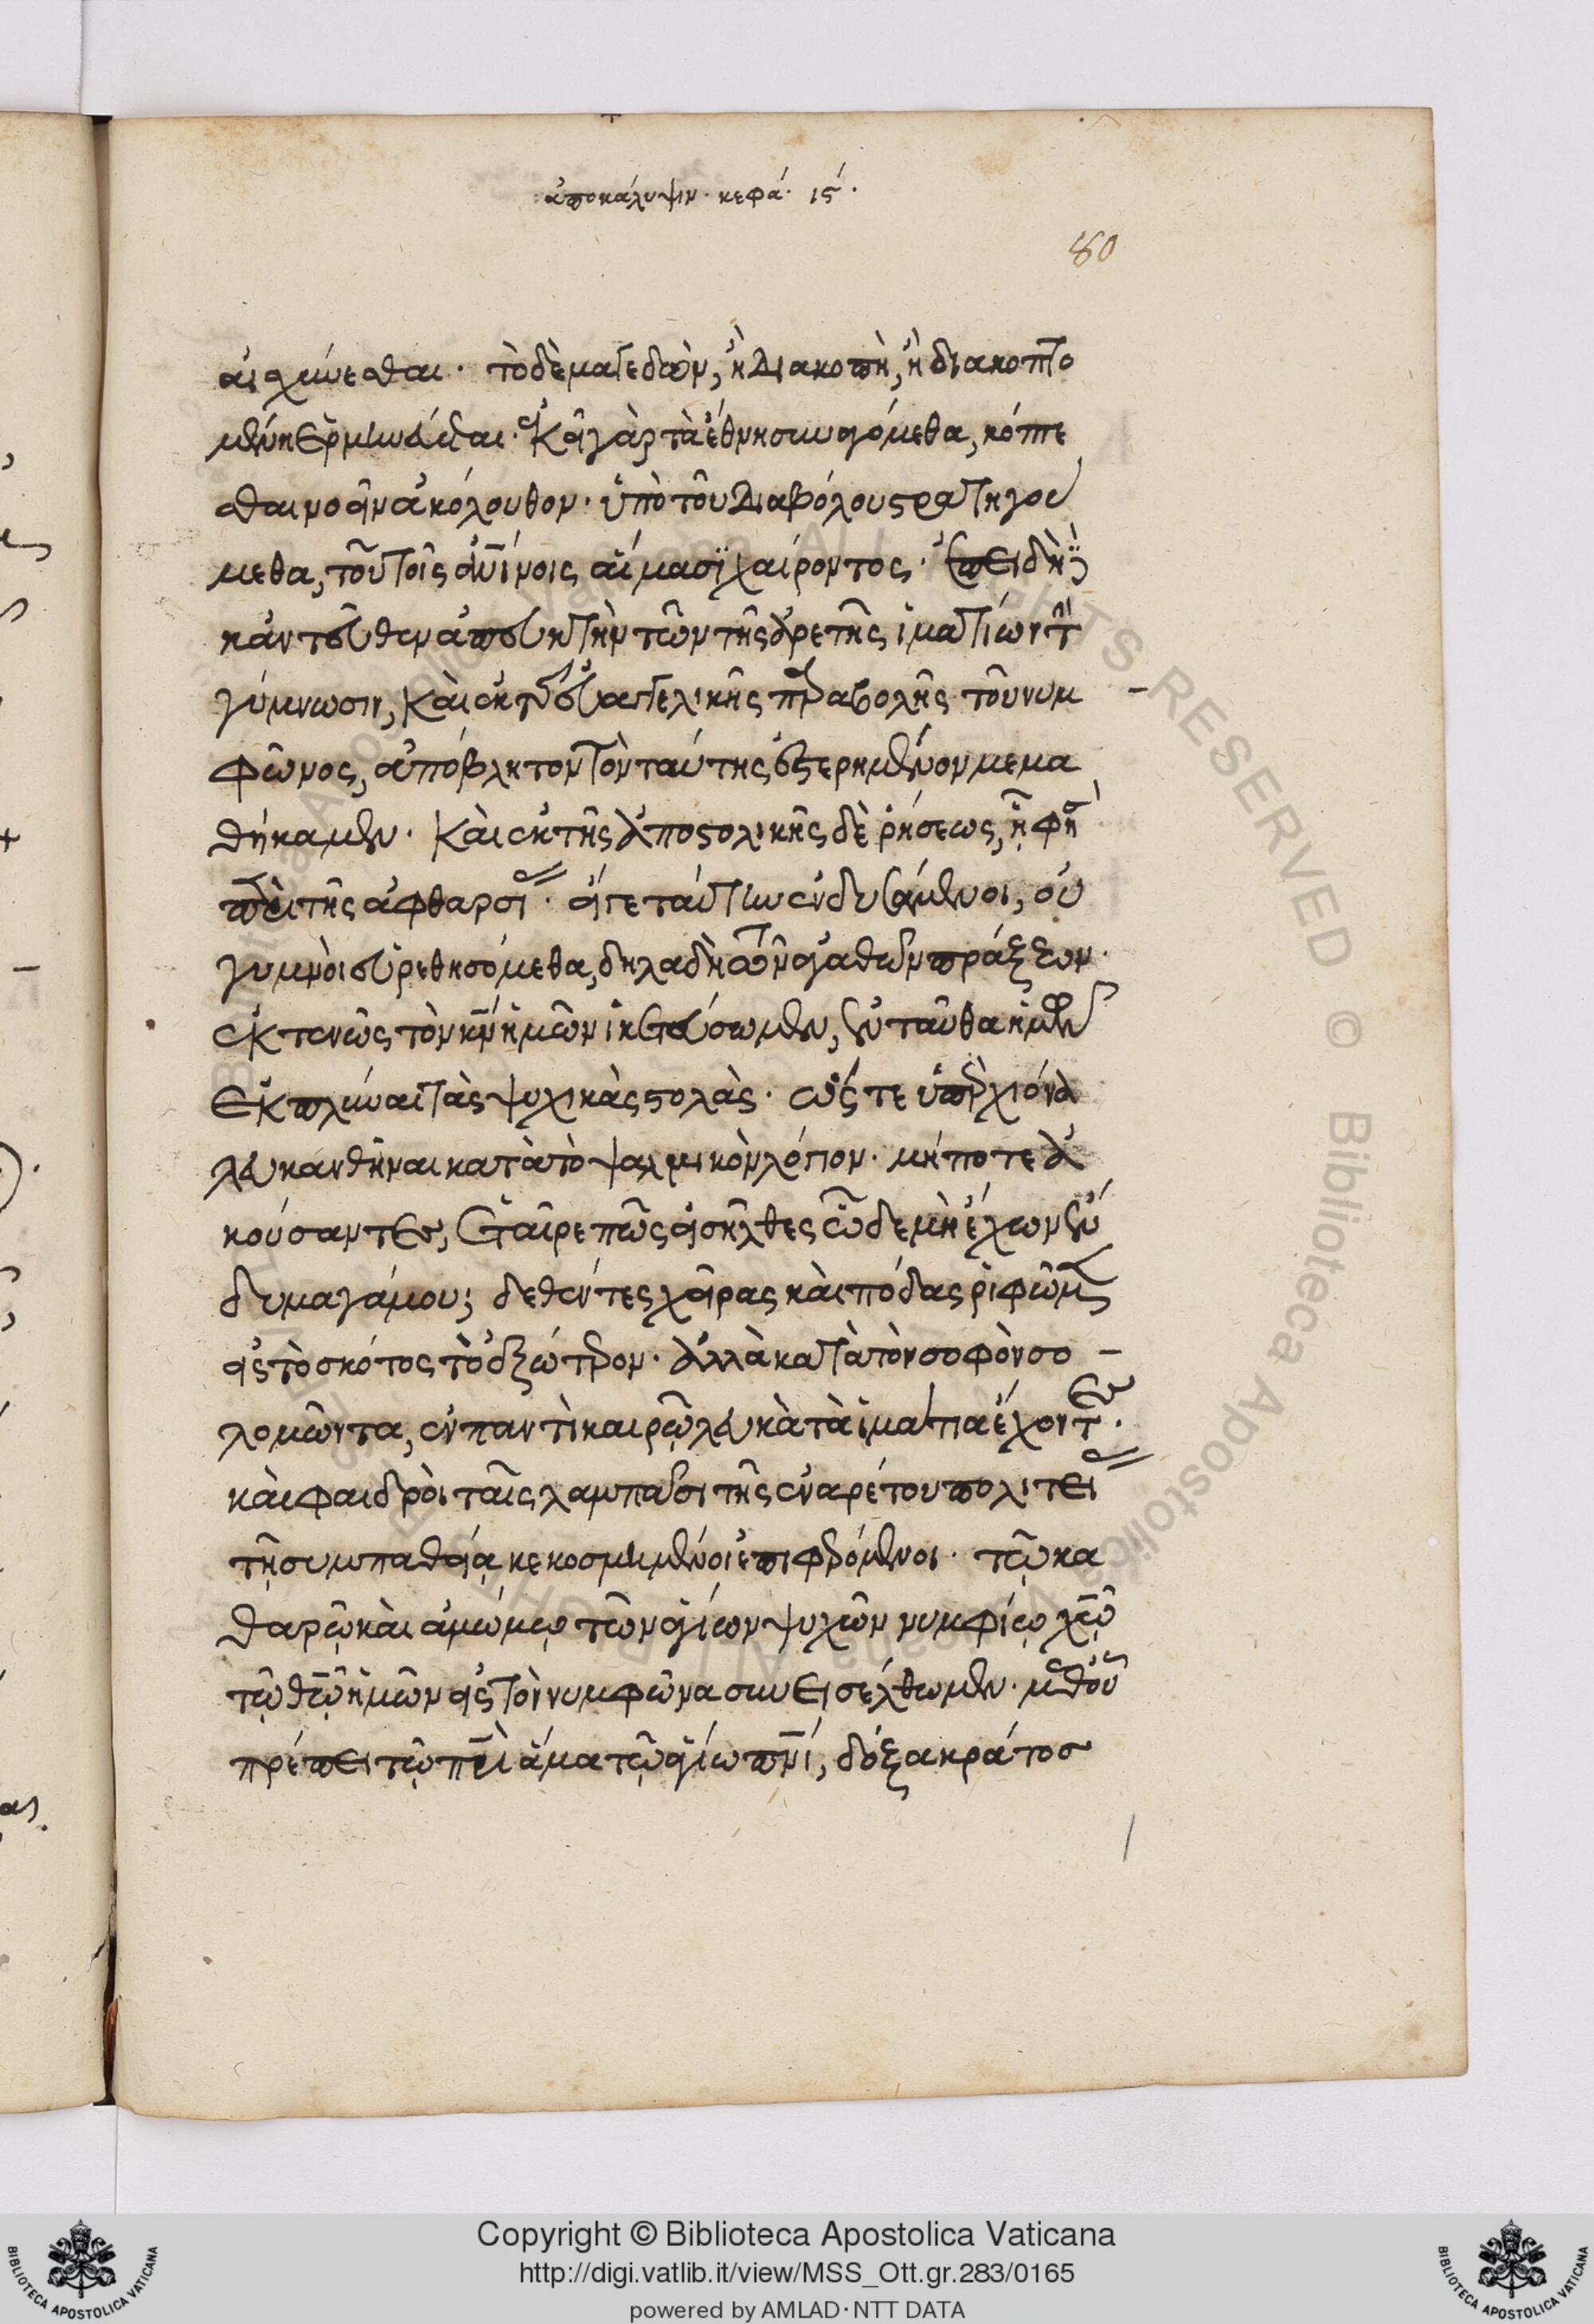 ἀποκάλυψιν. κεφά. ιϛ΄.
80
αἰσχύνεσθαι. τὸ δὲ μαγεδὼν, ἡ διακοπὴ, ἢ διακοπτο
μένη ἑρμηνεύεται. ἐκεῖ γὰρ τὰ ἔθνη συναγόμεθα, κόπτε
σθαι νοεῖν ἀκόλουθον. ὑπὸ τοῦ διαβόλου στρατηγού
μεθα, τοῦ τοῖς ἀνίνοις αἵμασι χαίροντος. ἐπειδὴ
κἀντεῦθεν ἀπευκτὴν τῶν τῆς ἀρετῆς ἱματίων τὴν
γύμνωσιν, καὶ ἐκ τῆς εὐαγγελικῆς παραβολῆς τοῦ νυμ
φῶνος, ἀπόβλητον τὸν ταύτης ἐστερημένον μεμα
θήκαμεν. καὶ ἐκ τῆς ἀποστολικῆς δὲ ῥήσεως, ᾗ φη
περὶ τῆς ἀφθαρσίας. εἴγε ταύτην ἐνδυσάμενοι, οὐ
γυμνοὶ εὑρεθησόμεθα, δηλαδὴ τῶν ἀγαθῶν πράξεων.
ἐκτενῶς τὸν κν ἡμῶν ἱκετεύσωμεν, ἐνταῦθα ἡμῖν
ἐκπλῦναι τὰς ψυχικὰς στολὰς. ὥστε ὑπὲρ χιόνα
λευκανθῆναι κατὰ τὸ ψαλμικὸν λόγιον. μήποτε ἀ
κούσαντες, ἑταῖρε πῶς εἰσῆλθες ὧδε μὴ ἔχων ἔν
δυμα γάμου; δεθέντες χεῖρας καὶ πόδας ῥιφῶμεν
εἰς τὸ σκότος τὸ ἐξώτερον. ἀλλὰ κατὰ τὸν σοφὸν σο
λομῶντα, ἐν παντὶ καιρῷ λευκὰ τὰ ἱμάτια ἔχοντες.
καὶ φαιδροὶ ταῖς λαμπάσι τῆς ἐναρέτου πολιτείας
τῇ συμπαθείᾳ κεκοσμημένοι ἐπιφερόμενοι. τῷ κα
θαρῷ καὶ ἀμώμῳ τῶν ἁγίων ψυχῶν νυμφίῳ χῷ
τῷ θῷ ἡμῶν εἰς τὸν νυμφῶνα συνεισέλθωμεν. μεθ' οὗ
πρέπει τῷ πρὶ ἅμα τῷ ἁγίῳ πνι, δόξα κράτος
Copyright © Biblioteca Apostolica Vaticana
http://digi.vatlib.it/view/MSS_Ott.gr.283/0165
powered by AMLAD · NTT DATA